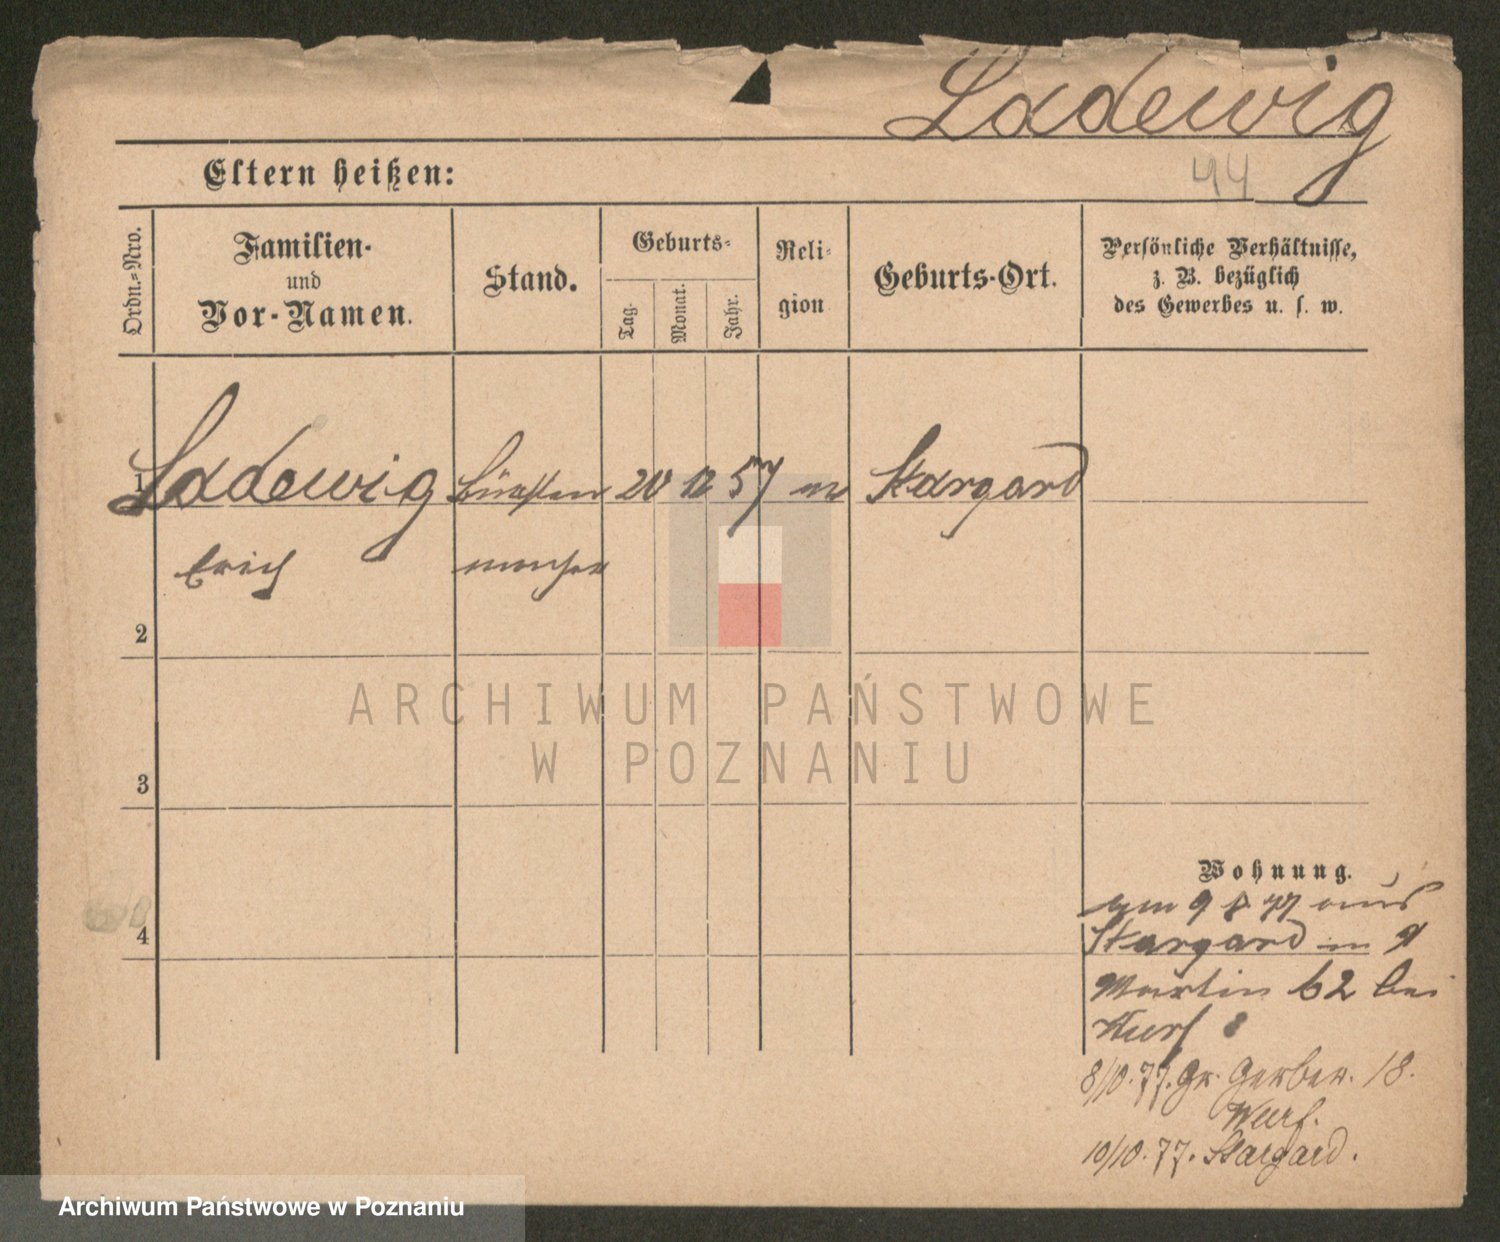 Ladewig
44
Eltern heißen:
Ordn.-Nro.
Familien-
und
Vor-Namen.
Stand.
Geburts-
Tag.
Monat.
Jahr.
Reli-
gion
Geburts-Ort.
Persönliche Verhältnisse,
z. B. bezüglich
des Gewerbes u. s. w.
1 Ladewig 20 12 57 Stargard
Erich macher
2
ARCHIWUM PAŃSTWOWE
W POZNANIU
3
Wohnung.
4
am 9 8 77 aus
Stargard in
Martin 62 bei
8/10. 77. Gr. Gerber. 18.
10/10. 77. Stargard.
Archiwum Państwowe w Poznaniu